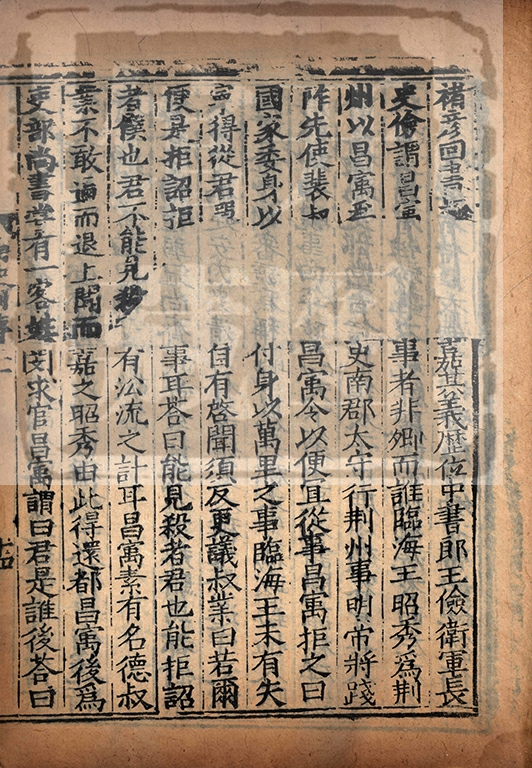 褚彥回書嘉其義歷位中書郎王儉衛軍長
史儉謂昌寓事者非卿而誰臨海王昭秀爲荆
州以昌寓爲史南郡太守行荆州事明帝將踐
阼先使裴叔昌寓令以便宜從事昌寓拒之曰
國家委身以付身以萬里之事臨海王未有失
寧得從君單自有啓聞須反更議叔業曰若爾
便是拒詔拒事耳荅曰能見殺者君也能拒詔
者僕也君不能見殺有沿流之計耳昌寓素有名德叔
業不敢逼而退上聞而嘉之昭秀由此得還都昌寓後爲
吏部尚書嘗有一客姓閔求官昌寓謂曰君是誰後荅曰